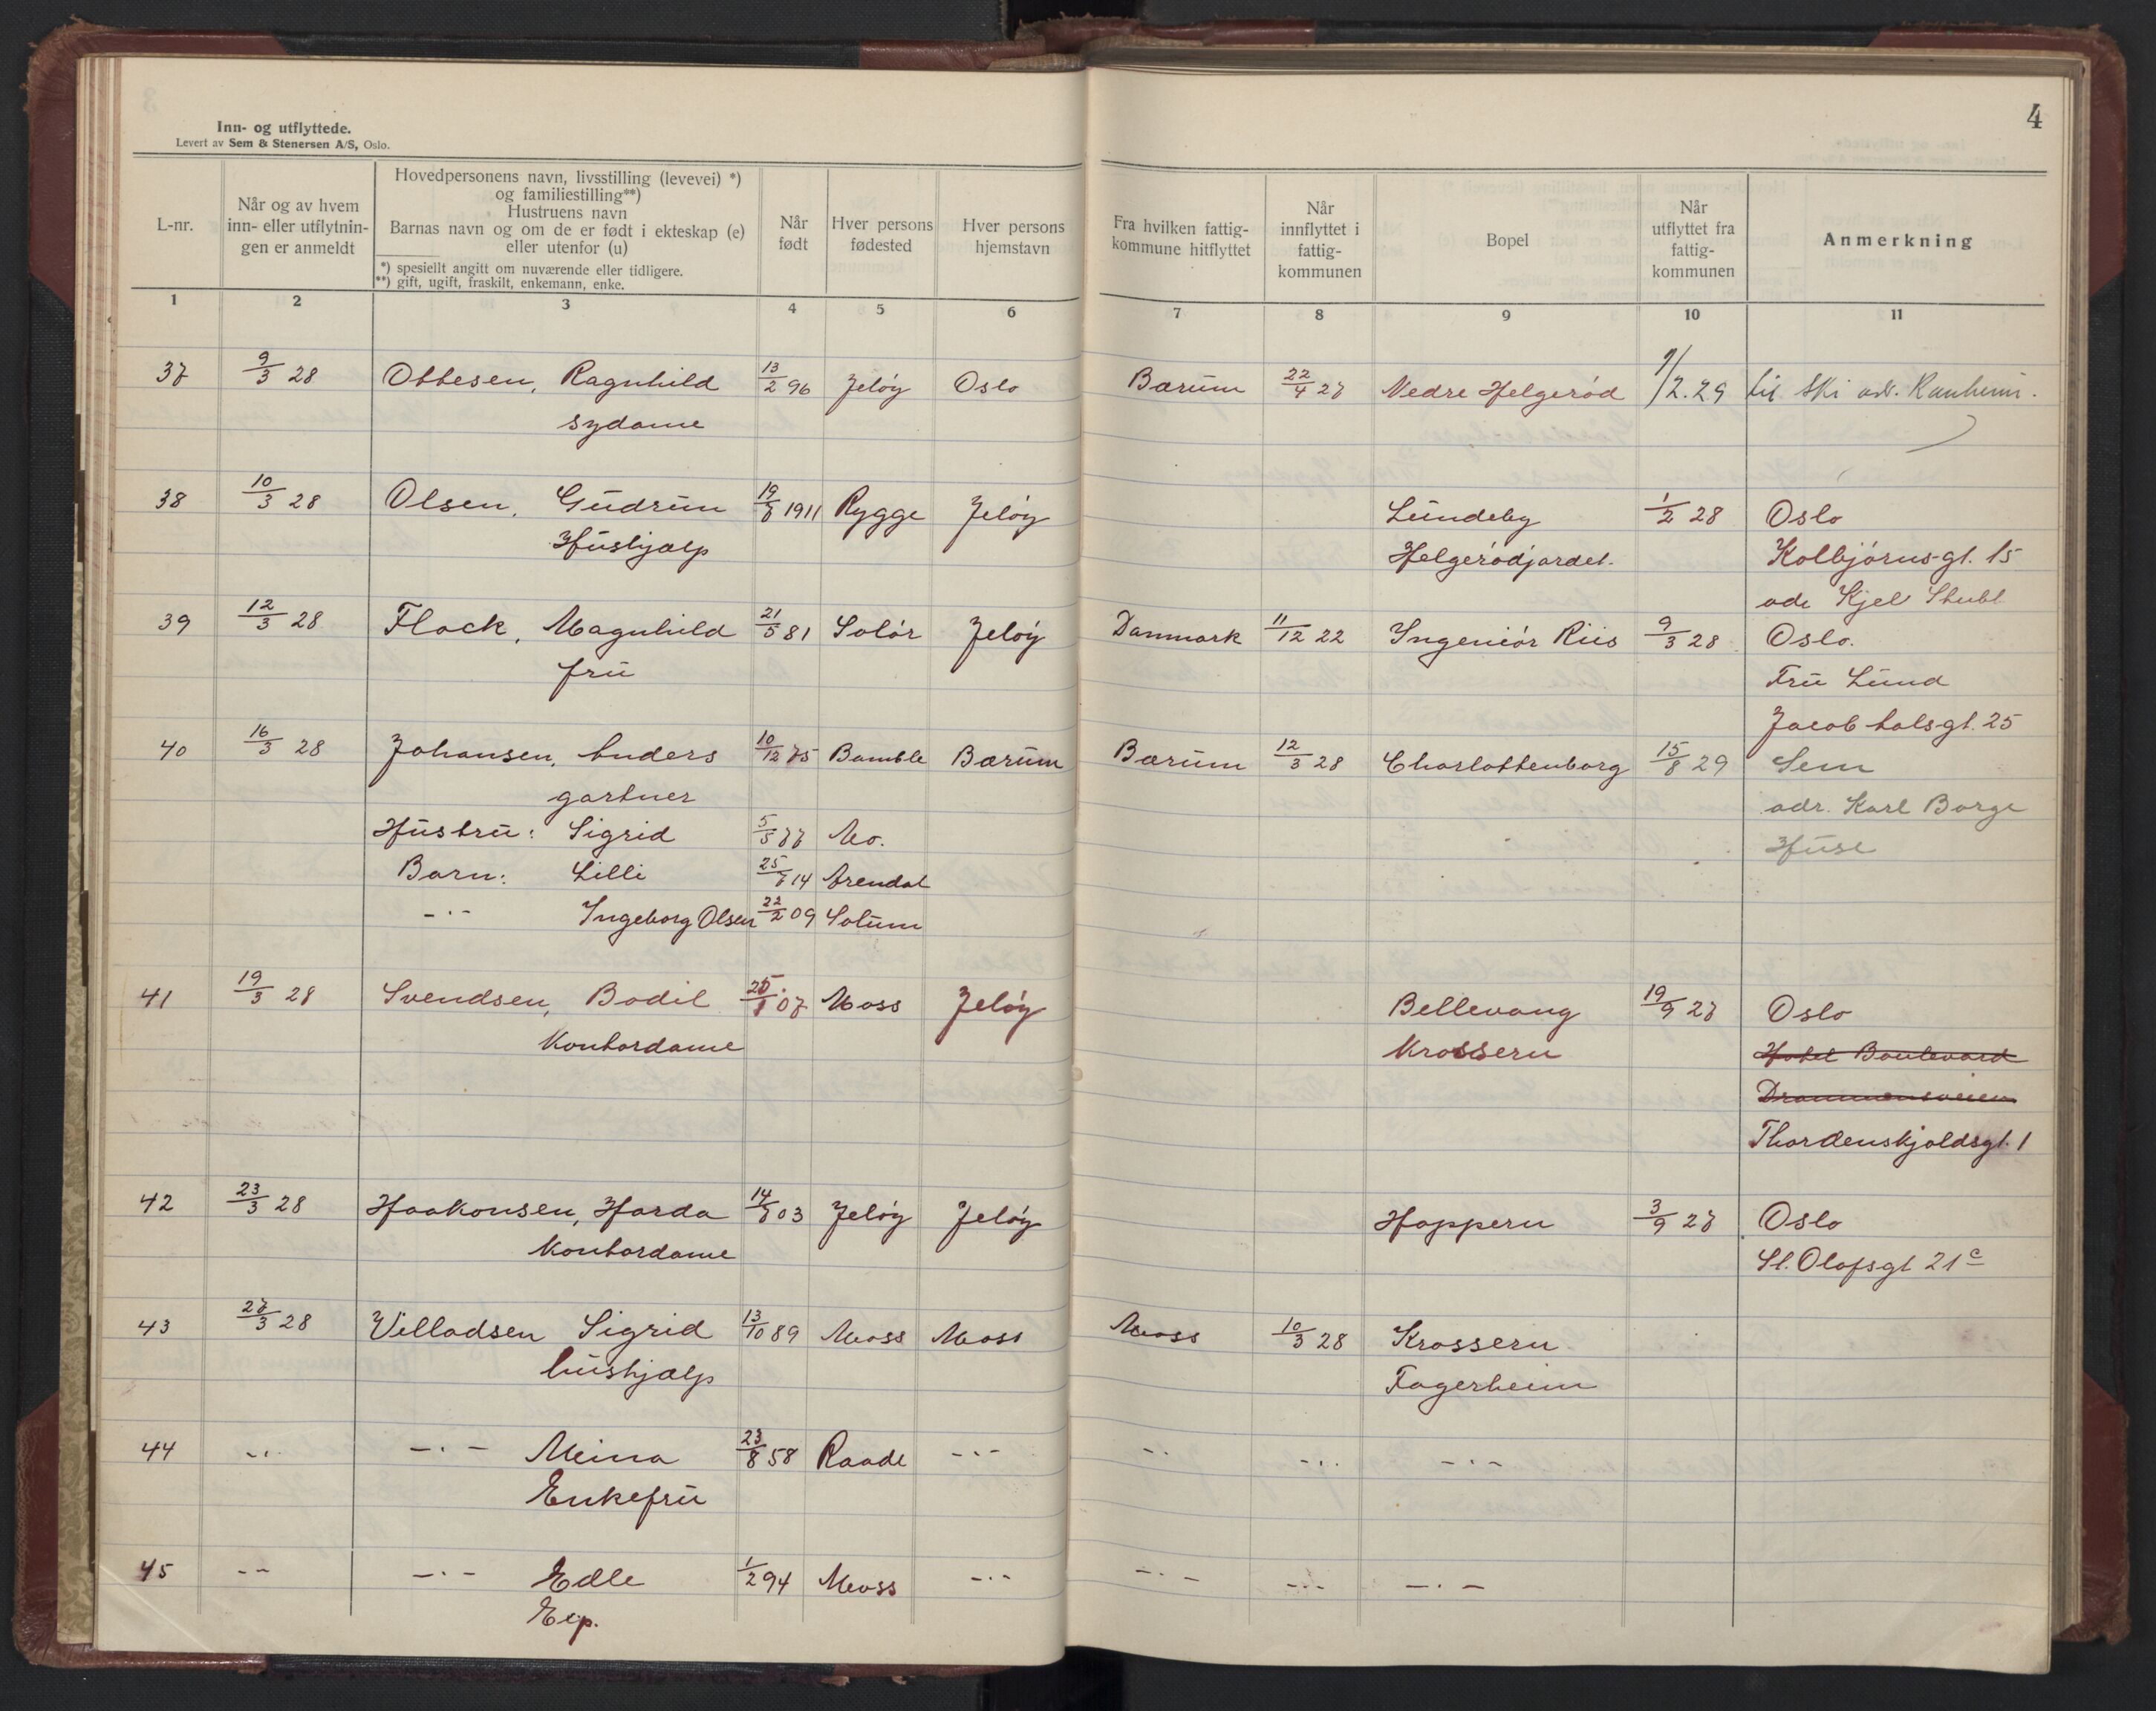 4
Inn- og utflyttede.
Levert av Sem & Stenersen A/S, Oslo.
L-nr.
Når og av hvem inn- eller utflytnin-gen er anmeldt
Hovedpersonens navn, livsstilling (levevei) *)
og familiestilling**)
Hustruens navn
Barnas navn og om de er født i ekteskap (e)
eller utenfor (u)
*) spesiellt angitt om nuværende eller tidligere.
**) gift, ugift, fraskilt, enkemann, enke.
Når født
Hver persons fødested
Hver persons hjemstavn
Fra hvilken fattig-kommune hitflyttet
Når innflyttet i fattig-kommunen
Bopel
Når utflyttet fra fattig-kommunen
Anmerkning
1 2 3 4 5 6 7 8 9 10 11
37 9/3 28 Ottesen, Ragnhild 13/2 96 Jeløy Oslo Bærum 22/4 27 Nedre Helgerød 1/2.29 til Ski adr.
sydame
38 10/3 28 Olsen, Gudrun 19/6 1911 Rygge Jeløy Lundeby 1/2 28 Oslo
Hushjælp Helgerødjordet. Kolbjørnsgt. 15
adr Kjel Stubl
39 12/3 28 Flock, Magnhild 21/5 81 Solør Jeløy Danmark 11/12 22 Ingeniør Riis 9/3 28 Oslo.
fru Fru Lund
Jacob halsgt. 25
40 16/3 28 Johansen, Anders 10/12 75 Bamble Bærum Bærum 12/3 28 Charlottenborg 15/8 29 Sem
gartner adr. Karl Borge
Hustru: Sigrid 5/5 77 Mo. Huse
Barn: Lilli 25/7 14 Arendal
-·- Ingeborg Olsen 22/2 09 Solum
41 19/3 28 Svendsen, Bodil 07 Moss Jeløy Bellevang 19/9 27 Oslo
Kontordame Krossern Hotel Boulevard
Drammensveien
Thordenskjoldsgt. 1
42 23/3 28 Haakonsen, Harda 14/6 03 Jeløy Jeløy Hoppern 3/9 27 Oslo
Kontordame St. Olafsgt 21c
43 27/3 28 Villadsen Sigrid 13/10 89 Moss Moss Moss 10/3 28 Krossern
hushjælp Fagerheim
44 -·- -·- Meina 23/8 58 Raade -·- -·- -·- -·-
Enkefru
45 -- -·- Edle 1/2 94 Moss -·- -·- -·- -·-
Exp.